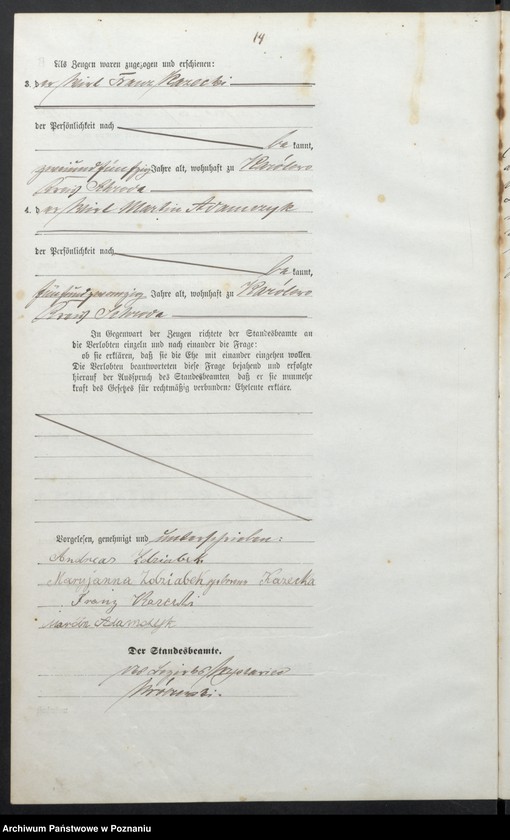 14
Als Zeugen waren zugezogen und erschienen:
3. der Wirt Franz Kazecki
der Persönlichkeit nach
bekannt,
zweiundfünfzig Jahre alt, wohnhaft zu
Kreis Schroda
4. der Wirt Martin Adamczyk
der Persönlichkeit nach
bekannt,
fünfundzwanzig Jahre alt, wohnhaft zu
Kreis Schroda
In Gegenwart der Zeugen richtete der Standesbeamte an
die Verlobten einzeln und nach einander die Frage:
ob sie erklären, daß sie die Ehe mit einander eingehen wollen.
Die Verlobten beantworteten diese Frage bejahend und erfolgte
hierauf der Ausspruch des Standesbeamten, daß er sie nunmehr
kraft des Gesetzes für rechtmäßig verbunden: Eheleute erkläre.
Vorgelesen, genehmigt und unterschrieben:
Andreas
Maryjanna Zdziabek geborene Kazecka
Franz Kazecki
Martin Adamczyk
Der Standesbeamte.
Archiwum Państwowe w Poznaniu